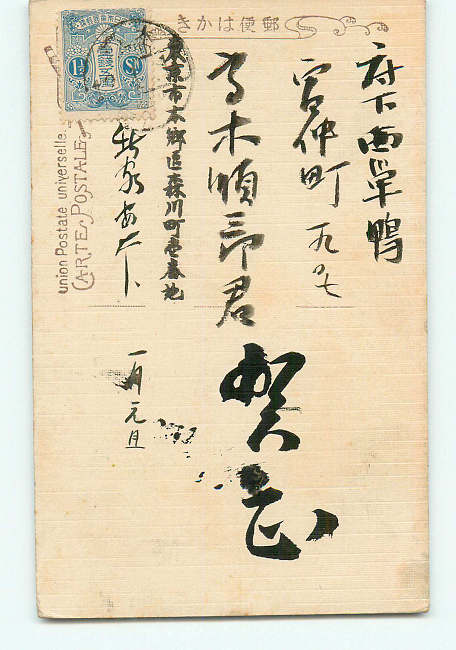 きかは便郵
府下西巣鴨
宮仲町 九〇七
高木順三郎君
賀正
東京市本郷區森川町壹番地
一月元旦
union Postale universelle.
CARTE POSTALE
1½ Sn